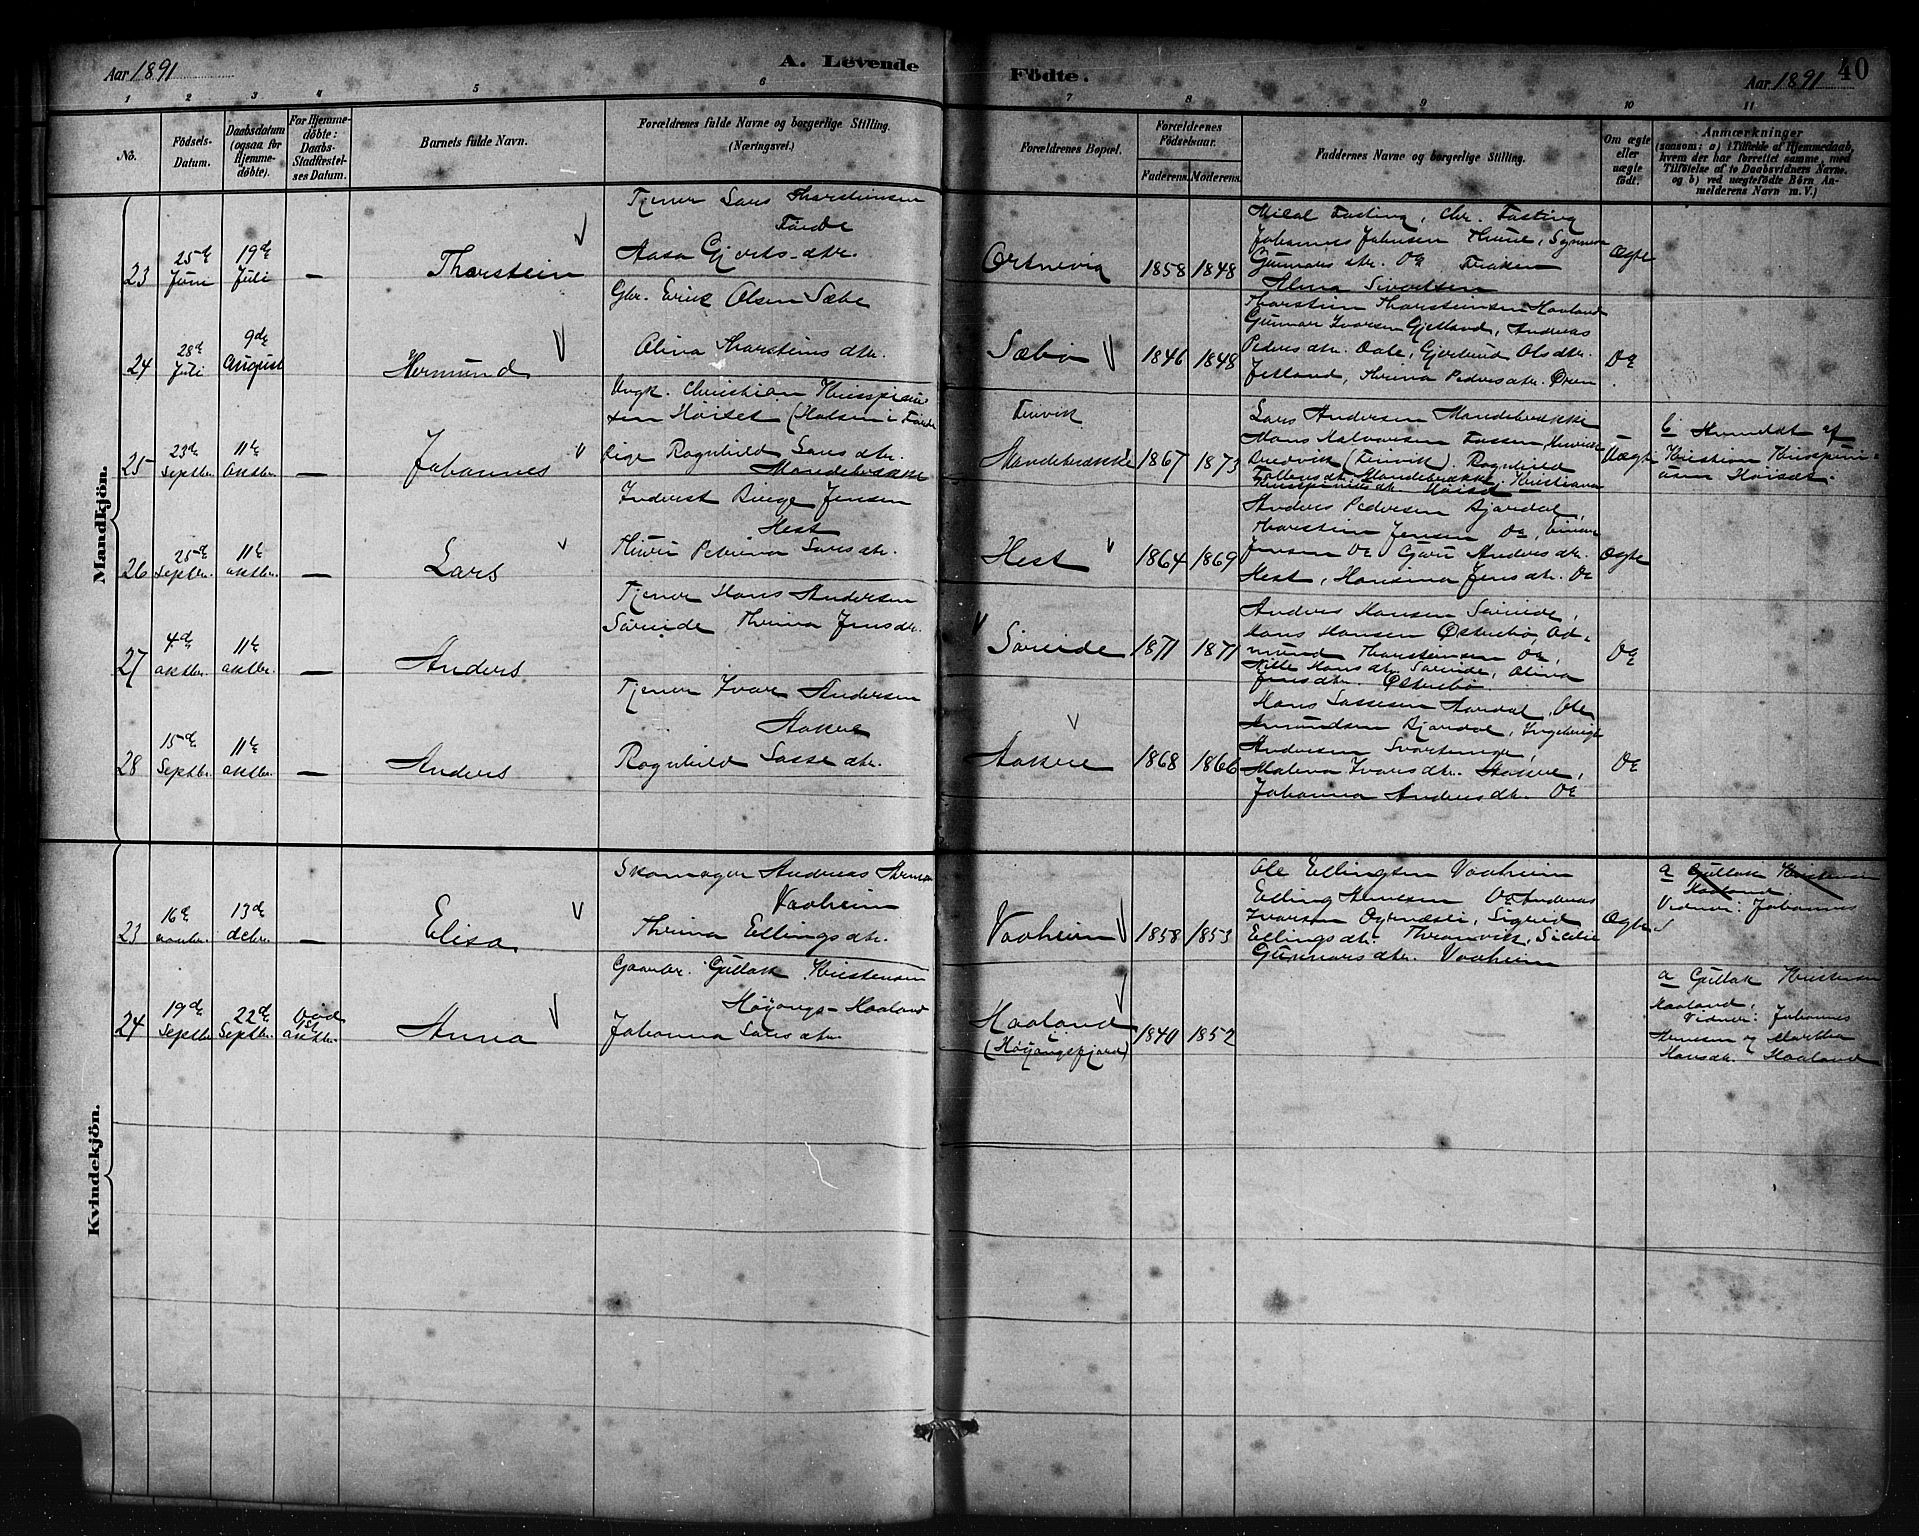 Aar 1891
A. Levende
Födte.
Aar 1891
40
1 2 3 4 5 6 7 8 9 10 11
No.
Födsels-
Datum.
Daabsdatum
(ogsaa for
Hjemme-
döbte).
For Hjemme-
döbte:
Daabs-
Stadfæstel-
ses Datum.
Barnets fulde Navn.
Forældrenes fulde Navne og borgerlige Stilling.
(Næringsvei.)
Forældrenes Bopæl.
Forældrenes
Födselsaar.
Faderens.
Moderens.
Faddernes Navne og borgerlige Stilling.
Om ægte
eller
uægte
födt.
Anmærkninger
(saasom: a) i Tilfælde af Hjemmedaab,
hvem der har forrettet samme, med
Tilföielse af to Daabsvidners Navne.
og b) ved uægtefödte Börn An-
melderens Navn m. V.)
Mandkjön.
23
25de
Juni
19de
Juli
—
Thorstein
Tjener Lars Thorsteinsen
Förde
Aasa Gjertsdtr.
Ortnevig
1858
1848
Fasting, Chr. Fasting
Johannes Johnsen
Gunnarsdtr. De
Alma Sivertsen
Ægte
24
28de
Juli
9de
August
Hermund
Gbr. Erik Olsen Sæbø
Olina Thorsteinsdtr.
Sæbø
1846
1848
Thorstein Thorsteinsen Haaland
Gunnar Ivarsen Gjetland, Andreas
Pedersdtr. Dale, Gjertrud Olsdtr.
Jetland, Thrina Pedersdtr. Øren
De
25
23de
Septbr.
11te
Oktbr.
—
Johannes
Ungk. Christian
Høiset
Pige Ragnhild Larsdtr.
Mandebrække
Mandebrække
1867
1873
Lars Andersen Mandebrække
Hans Halvorsen
Ragnhild
Mandebrække, Kristiane
Uægte
b Anmeldt af
Kristian
26
25de
Septbr.
11te
Oktbr.
—
Lars
Inderst Børge Jensen
Hest
Thrine Petrina Larsdtr.
Hest
1864
1869
Anders Pedersen Bjordal,
Thorstein Jensen De, Einar
Jensen De Guri Andersdtr.
Hest, Hansina Jensdtr. De
Ægte
27
4de
Oktbr.
11te
Oktbr.
—
Anders
Tjener Hans Andersen
Söreide Thrina Jensdtr.
Söreide
1871
1871
Anders Hansen Söreide,
Hans Hansen Østerbø, Od-
mund Thorsteinsen De,
Hansdtr. Söreide, Olina
Jensdtr. Østerbø
De
28
15de
Septbr.
11te
Oktbr.
—
Anders
Tjener Ivar Andersen
Aakre
Ragnhild Lassedtr.
Aakre
1868
1866
Hans Lassesen Aardal, Ole
Amundsen Bjordal, Ingebrigt
Andersen Svortinge,
Malena Ivarsdtr. Aakre,
Johanna Andersdtr. De
De
Kvindekjön.
23
16de
13de
Debr.
—
Elisa
Skomager Andreas
Vadheim
Thrina Ellingsdtr.
Vadheim
1858
1853
Ole Ellingsen Vadheim
Elling De Andreas
Ivarsen Sigrid
Ellingsdtr. Thronvik, Sicilie
Gunnarsdtr. Vadheim
Ægte
a Gullak Kristensen
Haaland.
Vidner: Johannes
24
19de
Septbr.
22de
Septbr.
Oktbr.
Anna
Gaardbr. Gullak Kristensen
Høyangs-Haaland
Johanna Larsdtr.
Haaland
(Høyangsfjord)
1840
1852
a Gullak Kristensen
Haaland,
Vidner: Johannes
og Martha
Hansdtr. Haaland